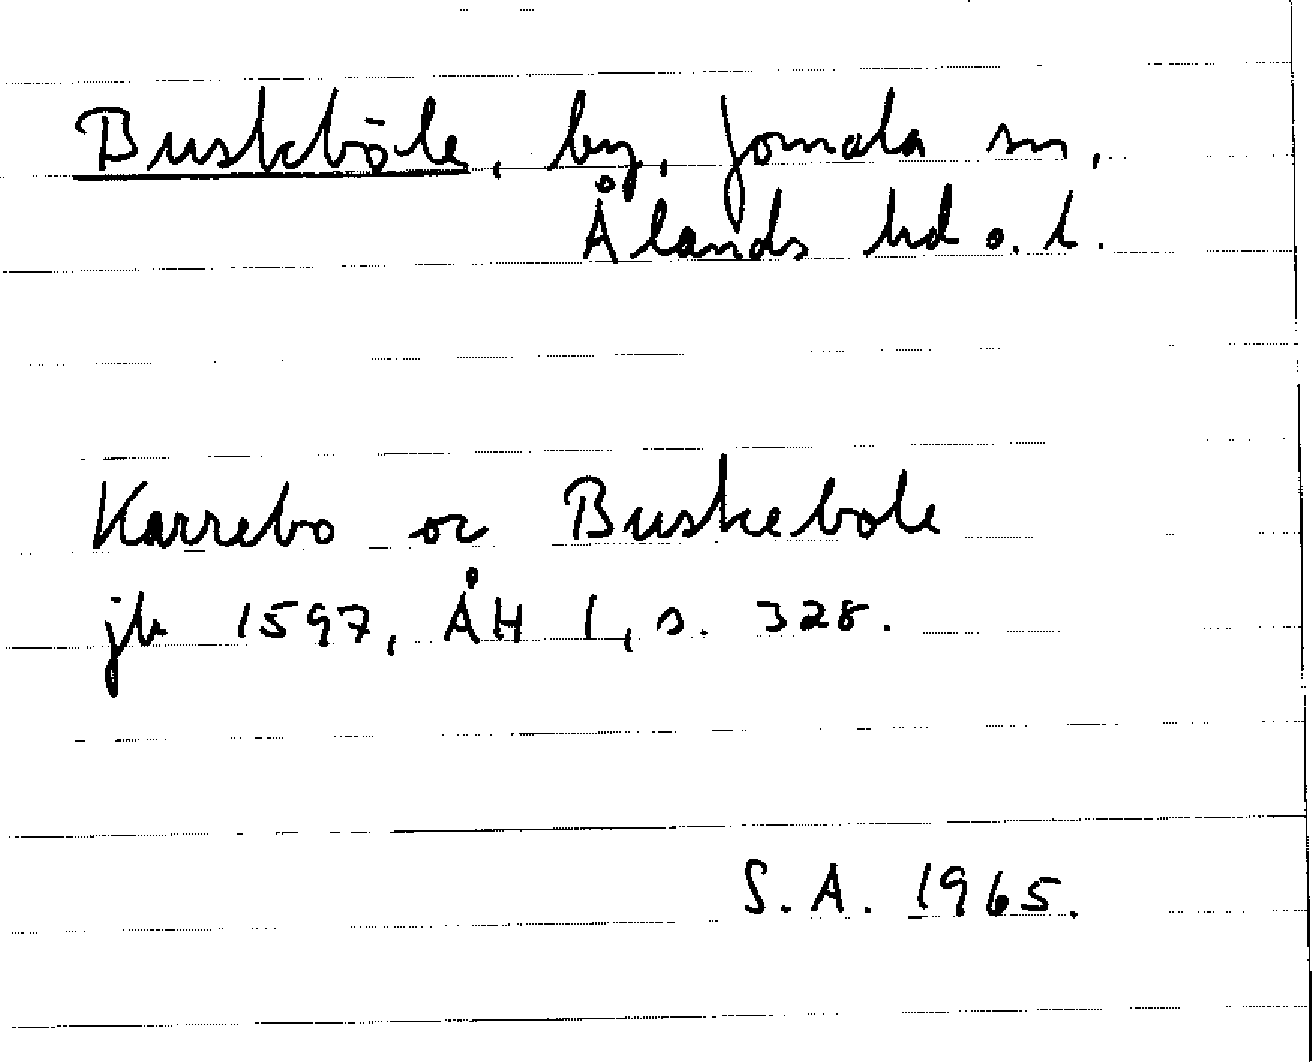 Buskböle, by, Jomala sn,
Ålands hd o. l.
Karrebo oc Buskebole
jb 1597, ÅH 1, s. 328.
S. A. 1965.